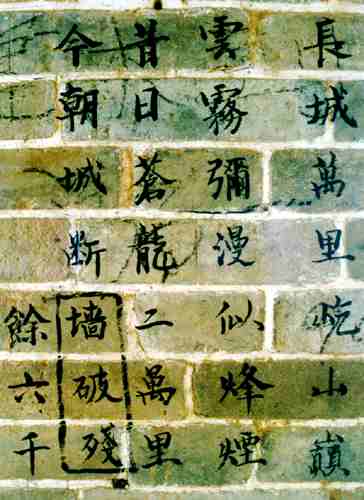 長城萬里屹山嶺
雲霧彌漫似烽煙
昔日蒼龍二萬里
今朝城断墙破殘
餘六千